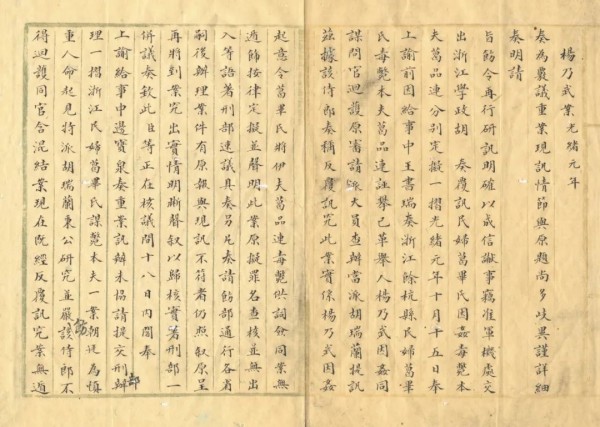 楊乃武案光緒元年
奏為覆議重案現訊情節與原題尚多歧異謹詳細
奏明請
旨飭令再行研訊明確以成信讞事竊准軍機處交
出浙江學政胡 奏覆訊民婦葛畢氏因姦毒斃本
夫葛品連分別定擬一摺光緒元年十月十五日奉
上諭前因給事中王書瑞奏浙江餘杭縣民婦葛畢
氏毒斃本夫葛品連誣攀已革舉人楊乃武因姦同
謀問官迴護原審請派大員查辦當派胡瑞瀾提訊
茲據該侍郎奏稱反覆訊究此案實係楊乃武因姦
起意令葛畢氏將伊夫葛品連毒斃供詞僉同案無
遁飾按律定擬並聲明此案原擬罪名查核並無出
入等語著刑部速議具奏另片奏請飭部通行各省
嗣後辦理案件有原報與現訊不符者仍照叙原呈
再將到案究出實情明晰聲叙以歸核實著刑部一
併議奏欽此臣等正在核議間十八日內閣奉
上諭給事中邊寶泉奏重案訊辦未協請提交刑部辦
理一摺浙江民婦葛畢氏謀斃本夫一案朝廷為慎
重人命起見特派胡瑞瀾秉公研究並嚴諭該侍郎不
得迴護同官含混結案現在既經反覆訊究案無遁